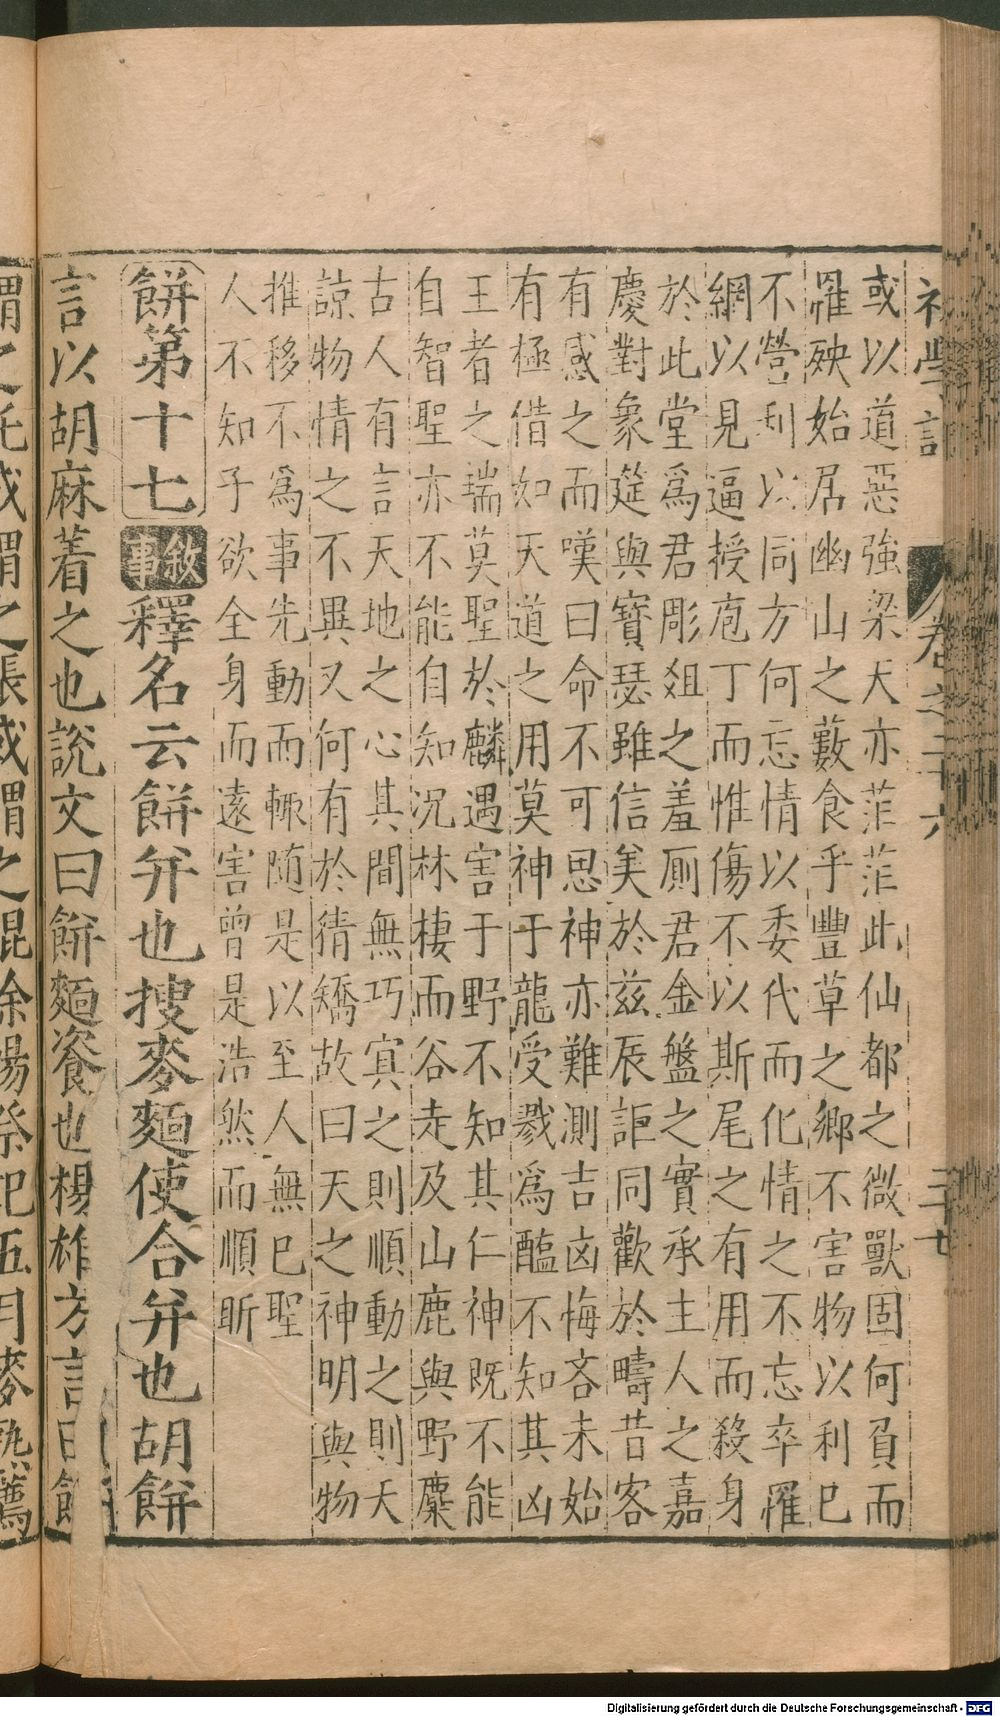 初學記 卷之二十六 三十七
或以道惡強梁天亦茫茫此仙都之微獸固何負而
罹殃始居幽山之藪食乎豐草之鄉不害物以利己
不營利以同方何忘情以委代而化情之不忘卒罹
網以見逼授庖丁而惟傷不以斯尾之有用而殺身
於此堂爲君彫俎之羞厠君金盤之實承主人之嘉
慶對衆筵與寶瑟雖信美於兹辰詎同歡於疇昔客
有感之而嘆曰命不可思神亦難測吉凶悔吝未始
有極借如天道之用莫神于龍受戮爲醢不知其凶
王者之瑞莫聖於麟遇害于野不知其仁神既不能
自智聖亦不能自知况林棲而谷走及山鹿與野麋
古人有言天地之心其間無巧冥之則順動之則夭
諒物情之不異又何有於猜矯故曰天之神明與物
推移不爲事先動而輙随是以至人無已聖
人不知予欲全身而遠害曾是浩然而順斯
餅第十七 敘事 釋名云餅并也搜麥麵使合并也胡餅
言以胡麻着之也說文曰餅麵餈也楊雄方言曰餅
謂之飥或謂之餦或謂之餛徐暢祭記五月麥熟薦
Digitalisierung gefördert durch die Deutsche Forschungsgemeinschaft - DFG